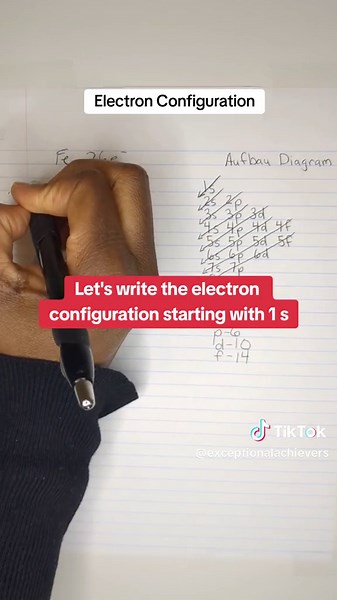 Electron Configuration
Fe 26e⁻
Aufbau Diagram
1s
2s 2p
3s 3p 3d
4s 4p 4d 4f
5s 5p 5d 5f
6s 6p 6d
7s 7p
Let's write the electron
configuration starting with 1 s
p-6
d-10
f-14
TikTok
@exceptionalachievers